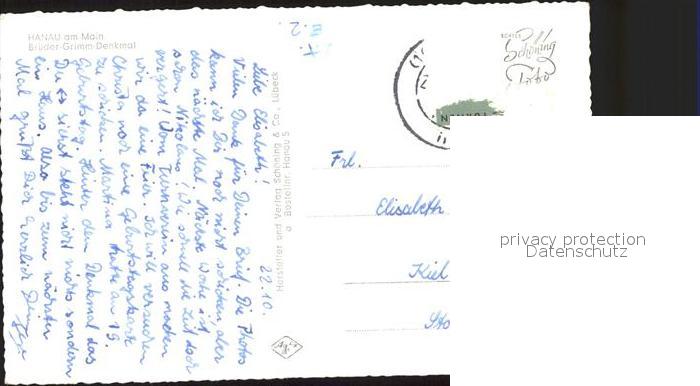 HANAU am Main
Brüder-Grimm-Denkmal
22.10.
Liebe Elisabeth!
Vielen Dank für Deinen Brief. Die Photos
kann ich Dir noch nicht schicken, aber
das nächste Mal. Nächste Woche ist
schon Nikolaus! Wie schnell die Zeit doch
vergeht! Vom Turnverein aus machen
wir da eine Feier. Ich will versuchen
Christa noch eine Geburtstagskarte
zu schicken. Martina hatte am 19.
Geburtstag. Hinter dem Denkmal das
Du es siehst steht nicht nichts sondern
ein Haus, also bis zum nächsten
Mal grüßt Dich herzlich Deine
Hersteller und Verlag Schöning & Co., Lübeck
Bestellnr. Hanau 5
Agfa
ECHTES
Schöning
Foto
Frl.
Elisabeth
Kiel
privacy protection
Datenschutz